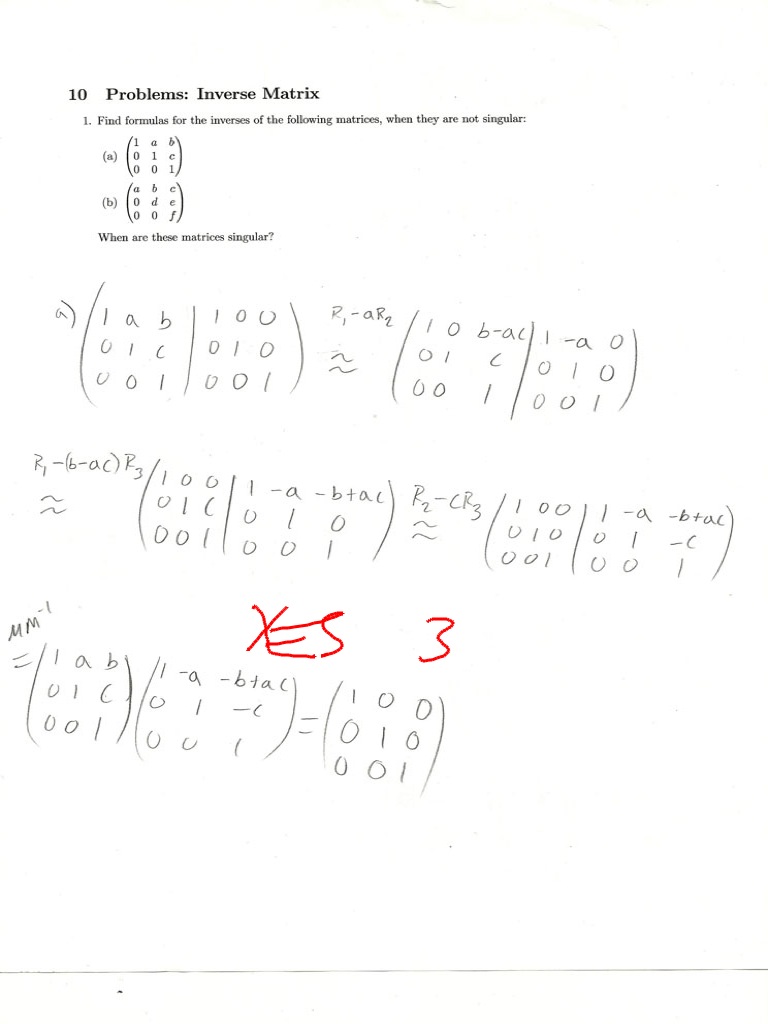 10 Problems: Inverse Matrix
1. Find formulas for the inverses of the following matrices, when they are not singular:
(a) (1 a b
0 1 c
0 0 1)
(b) (a b c
0 d e
0 0 f)
When are these matrices singular?
a) (1 a b | 1 0 0
0 1 c | 0 1 0
0 0 1 | 0 0 1)
R₁-aR₂ ≈ (1 0 b-ac | 1 -a 0
0 1 c | 0 1 0
0 0 1 | 0 0 1)
R₁-(b-ac)R₃ ≈ (1 0 0 | 1 -a -b+ac
0 1 c | 0 1 0
0 0 1 | 0 0 1)
R₂-cR₃ ≈ (1 0 0 | 1 -a -b+ac
0 1 0 | 0 1 -c
0 0 1 | 0 0 1)
YES 3
MM⁻¹
= (1 a b
0 1 c
0 0 1)
(1 -a -b+ac
0 1 -c
0 0 1)
= (1 0 0
0 1 0
0 0 1)